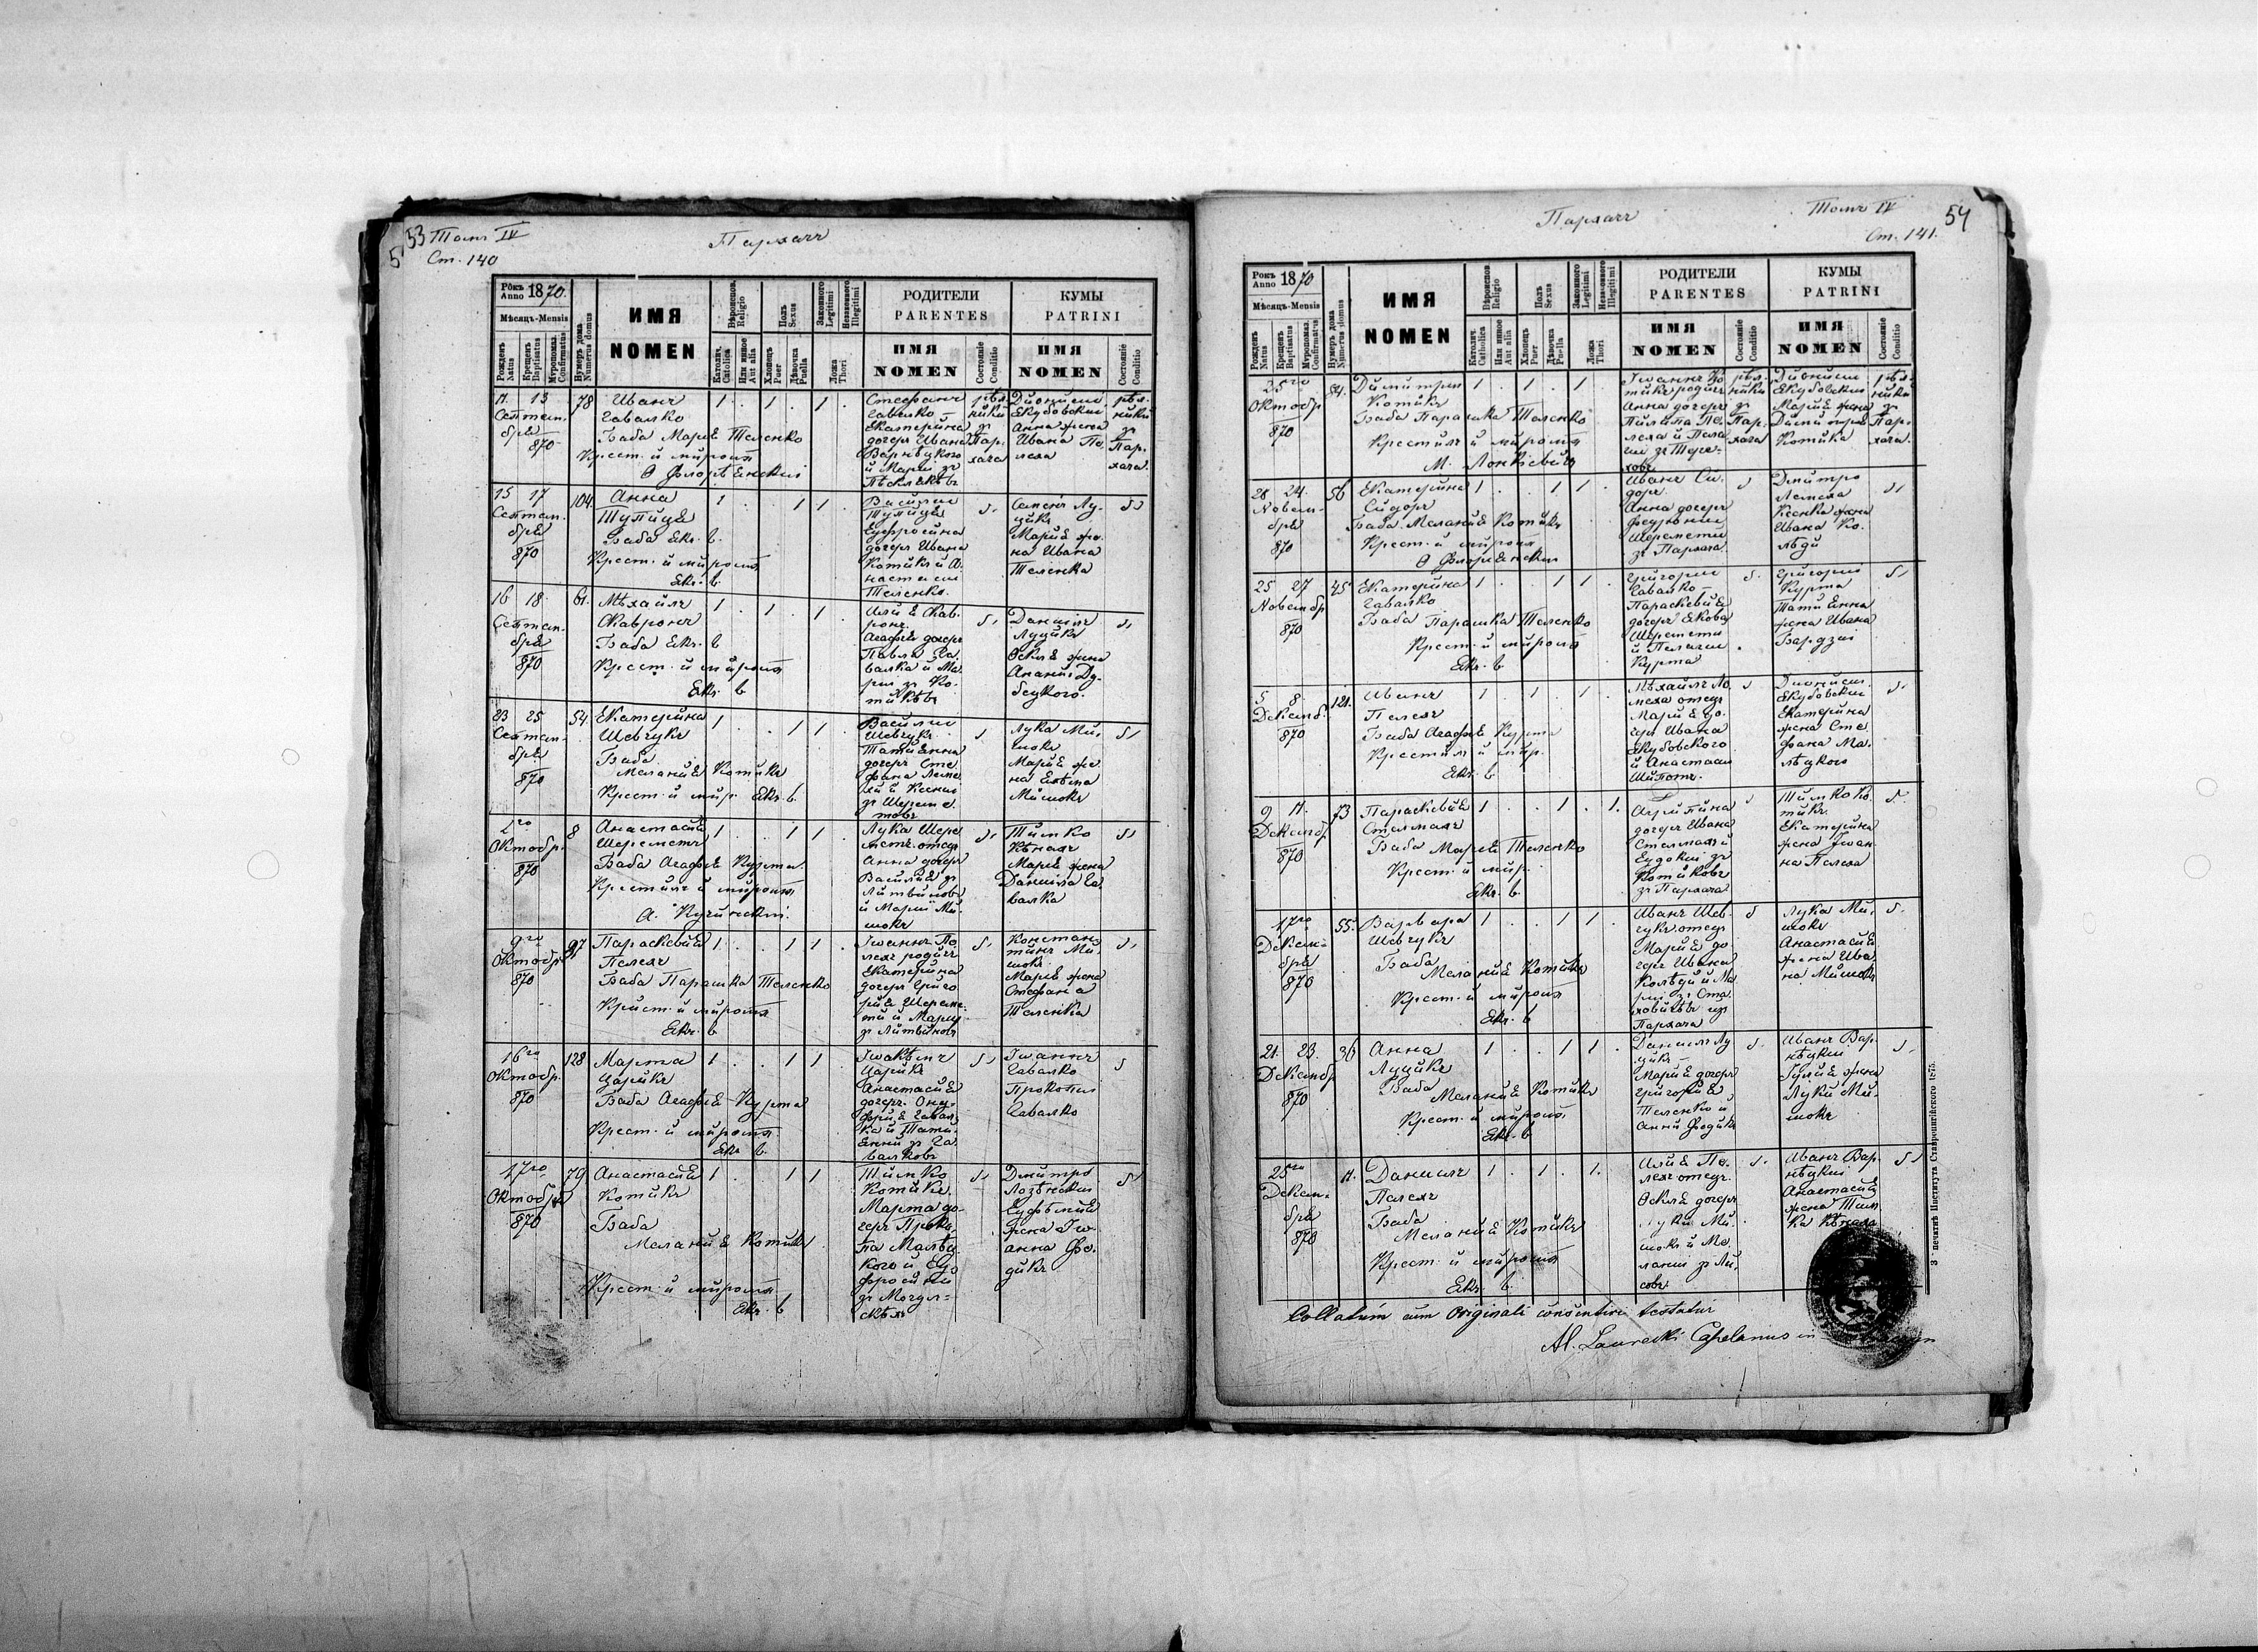 53 Томъ IV
Ст. 140
Пархачъ
Рокъ Anno 1870.
Мѣсяцъ-Mensis
Рожденъ Natus
Крещенъ Baptisatus
Мѵропомаз. Confirmatus
Нумеръ дома Numerus domus
ИМЯ
NOMEN
Вѣроиспов. Religio
Католич. Catolica
Или иное Aut alia
Полъ Sexus
Хлопецъ Puer
Дѣвочка Puella
Законного Legitimi
Незаконного Illegitimi
Ложа Thori
РОДИТЕЛИ
PARENTES
ИМЯ
NOMEN
Состояніе Conditio
КУМЫ
PATRINI
ИМЯ
NOMEN
Состояніе Conditio
11 13
Септем.
брія
870
78
Иванъ
Гавалко
Баба Марія Теленко
Крест. и мѵропом
1 . 1 . 1 .
Стефанъ
Гавалко
Екатерина
дочерь Ивана
и Маріи зъ
рѣл.
ники
зъ
Пар.
хача
Діонисій
Якубовскій
Анна жена
Ивана Пе.
леха
рѣл.
ники
зъ
Пар.
хача.
15 17
Септем.
брія
870
104
Анна
Тупица
Баба Якъ. в.
Крест. и мѵропом
Якъ. в.
1 . . 1 1
Василій
Тупица
Евфросина
дочерь Ивана
Котика и А.
настасіи
Теленко.
Семенъ Лу.
цикъ
Марія же.
на Ивана
Теленка
16 18.
Септем.
брія
870
61.
Мѣхайлъ
Скавронъ
Баба Якъ. в
Крест. и мѵропом
Якъ. в
1 . 1 . 1
Илія Скав.
ронъ
Агафія дочерь
Павла Га.
валка и Ма.
ріи зъ Ко.
тиковъ
Даниилъ
Луцикъ
Фекля жена
Ананіи Ду.
бецкого.
23 25
Септем.
брія
870
54.
Екатерина
Шевчукъ
Баба
Меланія Котикъ
Крест. и мѵр. Якъ. в.
1 . . 1 1
Василій
Шевчукъ
Татіянна
дочерь Сте
фана Леме
хи и Ксеніи
зъ Шереме.
товъ
Лука Ми.
шокъ
Марія же.
на
Мишокъ
1го
Октобр.
870
8
Анастасія
Шереметъ
Баба Агафія Курта.
Крестилъ и мѵропом
А. Кучинскій.
1 . . 1 1
Лука Шере
метъ отецъ
Анна дочерь
Василія зъ
Литвиновъ
и Маріи Ми.
шокъ
Тимко
Кѣнахъ
Марія жена
Даниіла Га.
валка
9го
Октобр.
870
97
Параскевія
Пелехъ
Баба Парашка Теленко
Крест. и мѵропом
Якъ. в
1 . . 1 1 .
Іоаннъ Пе
лехъ родичъ
Екатерина
дочерь Григо
рія Шереме.
ти и Маріи
зъ Литвиновъ
Констан.
тинъ Ми.
шокъ
Марія жена
Стефана
Теленка
16го
Октобр.
870
128
Марта
Царикъ
Баба Агафія Курта
Крест. и мѵропом
Якъ. в.
1 . . 1 1
Іоакѣмъ
Царикъ
Анастасія
дочерь Ону.
фрія Гавал.
ка и Тати.
янни зъ Га.
валковъ
Іоаннъ
Гавалко
Прокопій
Гавалко
17го
Октобрія
870
79
Анастасія
Котикъ
Баба
Меланія Котикъ
Крест. и мѵропом
Якъ. в
1 . . 1 1
Тимко
Котикъ
Марта до.
черь Проко
па Малѣц.
кого и Ев.
фросиніи
зъ
Дмитро
Лозѣнскій
Евфимія
жена Іо.
анна Фе.
дикъ
Пархачъ
Томъ IV
54
Ст. 141.
Рокъ Anno 1870
Мѣсяцъ-Mensis
Рожденъ Natus
Крещенъ Baptisatus
Мѵропомаз. Confirmatus
Нумеръ дома Numerus domus
ИМЯ
NOMEN
Вѣроиспов. Religio
Католич. Catholica
Или иное Aut alia
Полъ Sexus
Хлопецъ Puer
Дѣвочка Puella
Законного Legitimi
Незаконного Illegitimi
Ложа Thori
РОДИТЕЛИ
PARENTES
ИМЯ
NOMEN
Состояніе Conditio
КУМЫ
PATRINI
ИМЯ
NOMEN
Состояніе Conditio
25го
Октобр
870
84.
Димитрій
Котикъ
Баба Парашка Теленко
Крестилъ и мѵропом
М. Лонкѣвичъ
1 . 1 . 1
Іоаннъ Ко
тикъ родичъ
Анна дочерь
Пилипа Пе.
леха и Пела
гіи зъ Тере.
ховъ
рѣл.
ники
зъ
Пар.
хача
Діонисій
Якубовскій
Марія жена
Димитрія
Котика
рѣл.
ники
зъ
Пар.
хача.
28 24.
Новем.
брія
870
56
Екатерина
Сидоръ
Баба Меланія Котикъ
Крест. и мѵропом
1 . . 1 1 .
Иванъ Си.
доръ
Анна дочерь
Шеремети
зъ Пархача
Дмитро
Лемеха
Ксенка жена
Ивана Ко.
лѣди
25 27
Новембр
870
45
Екатерина
Гавалко
Баба Парашка Теленко
Крест. и мѵропом
Якъ. в.
1 . . 1 1 .
Григорій
Гавалко
Параскевія
дочерь Якова
Шеремети
и Пелагіи
Курта
Григорій
Курта
Татіянна
жена Ивана
5 8.
Декемб.
870
121.
Иванъ
Пелехъ
Баба Агафія Курта
Крестилъ и мѵр.
Якъ. в.
1 . 1 . 1 .
Мѣхайлъ Пе
лехъ отецъ
Марія до.
черь Ивана
Якубовского
и Анастасіи
Шипотъ.
Діонисій
Якубовскій
Екатерина
жена Сте
фана Ма.
лѣцкого
9 11.
Декемб.
870
73
Параскевія
Стельмахъ
Баба Марія Теленко
Крест. и мѵр.
Якъ. в.
1 . . 1 . 1.
Агрипина
дочерь Ивана
Стельмаха и
Евдокіи зъ
Котиковъ
зъ Пархача
Тимко Ко.
тикъ
Екатерина
жена Іоан
на Пелеха
17го
Декем.
брія
870
55.
Варвара
Шевчукъ
Баба
Меланія Котикъ
Крест. и мѵропом
Якъ. в
1 . . 1 1 .
Иванъ Шев.
чукъ отецъ
Марія до
черь Ивана
Колѣди и Ма
ріи зъ Ста
ховичѣвъ изъ
Пархача
Лука Ми.
шокъ
Анастасія
жена Ива
на Мишокъ
21. 23.
Декембр
870
36
Анна
Луцикъ
Баба
Меланія Котикъ
Крест. и мѵропом
Якъ. в
1 . . 1 1 .
Даниилъ Лу
цикъ
Марія дочерь
Григорія
Теленко и
Анни Федикъ
Иванъ Вар.
нѣцкій
Юлія жена
Луки Ми.
шокъ
25го
Декем.
брія
870
11.
Даниилъ
Пелехъ
Баба
Меланія Котикъ
Крест. и мѵропом
Якъ. в.
1 . 1 . 1.
Илія Пе.
лехъ отецъ.
Фекля дочерь
Луки Ми.
шокъ и Ме.
ланіи зъ Ли.
совъ.
Иванъ Вар.
нѣцкій
Анастасія
жена Тим
ка Кѣнаха
Collatum cum Originali consentire testatur
Al. Laurecki Capelanus in
З печатнѣ Института Ставропигійского 1875.